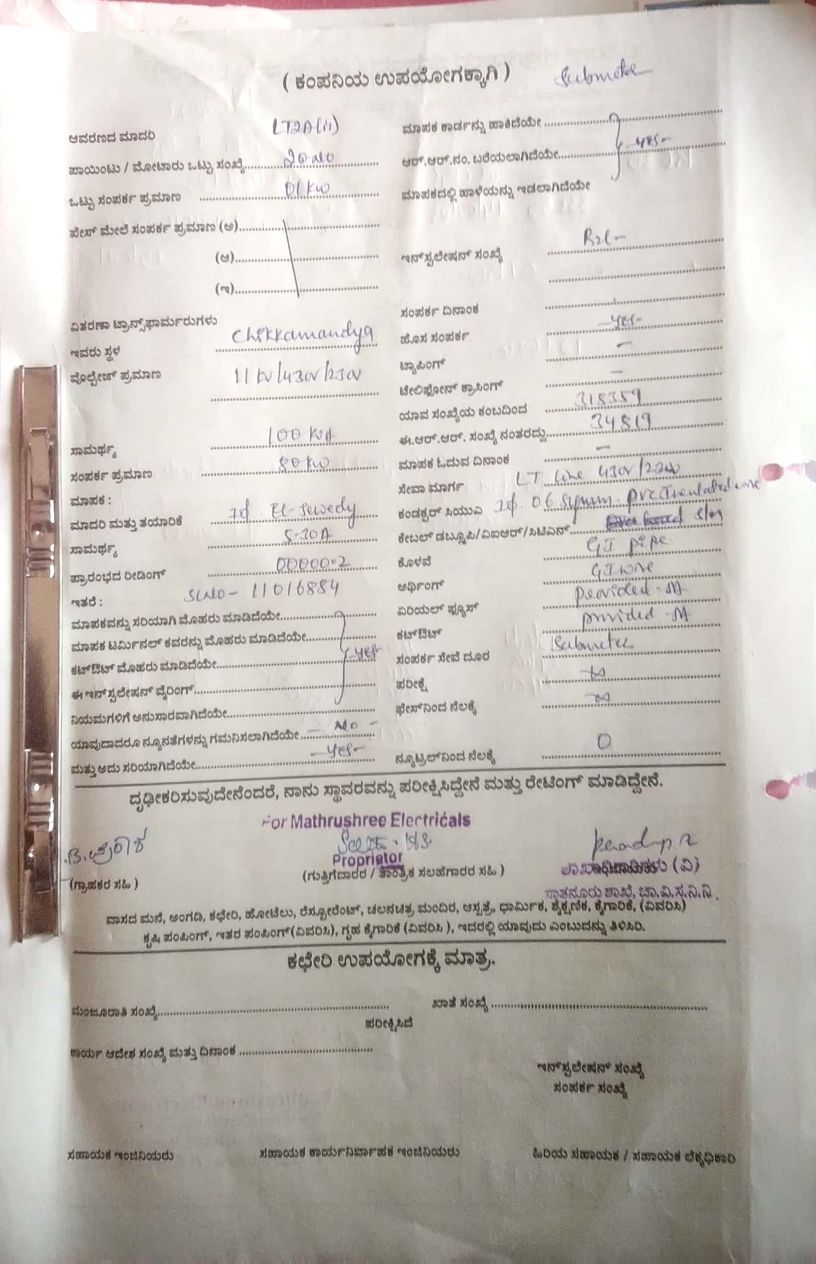 ( ಕಂಪನಿಯ ಉಪಯೋಗಕ್ಕಾಗಿ ) Submeter
ಆವರಣದ ಮಾದರಿ LT2A(ii)
ಪಾಯಿಂಟು / ಮೋಟಾರು ಒಟ್ಟು ಸಂಖ್ಯೆ
ಒಟ್ಟು ಸಂಪರ್ಕ ಪ್ರಮಾಣ 01 KW
ಪೇಸ್ ಮೇಲೆ ಸಂಪರ್ಕ ಪ್ರಮಾಣ (ಅ)
(ಆ)
(ಇ)
ವಿತರಣಾ ಟ್ರಾನ್ಸ್‌ಫಾರ್ಮರುಗಳು
ಇವರು ಸ್ಥಳ Chikkamandya
ವೊಲ್ಟೇಜ್ ಪ್ರಮಾಣ 11KV/430V/230V
ಸಾಮರ್ಥ್ಯ 100 KVA
ಸಂಪರ್ಕ ಪ್ರಮಾಣ 80 KW
ಮಾಪಕ :
ಮಾದರಿ ಮತ್ತು ತಯಾರಿಕೆ 1φ El-Sewedy
ಸಾಮರ್ಥ್ಯ 5-30A
ಪ್ರಾರಂಭದ ರೀಡಿಂಗ್ 00000.2
ಇತರೆ : SLNO- 11016884
ಮಾಪಕವನ್ನು ಸರಿಯಾಗಿ ಮೊಹರು ಮಾಡಿದೆಯೇ
ಮಾಪಕ ಟರ್ಮಿನಲ್ ಕವರನ್ನು ಮೊಹರು ಮಾಡಿದೆಯೇ
ಕಟ್‌ಔಟ್ ಮೊಹರು ಮಾಡಿದೆಯೇ yes
ಈ ಇನ್‌ಸ್ಟಲೇಷನ್ ವೈರಿಂಗ್
ನಿಯಮಗಳಿಗೆ ಅನುಸಾರವಾಗಿದೆಯೇ
ಯಾವುದಾದರೂ ನ್ಯೂನತೆಗಳನ್ನು ಗಮನಿಸಲಾಗಿದೆಯೇ - No -
ಮತ್ತು ಅದು ಸರಿಯಾಗಿದೆಯೇ -yes-
ಮಾಪಕ ಕಾರ್ಡನ್ನು ಹಾಕಿದೆಯೇ
ಆರ್.ಆರ್.ನಂ. ಬರೆಯಲಾಗಿದೆಯೇ -yes-
ಮಾಪಕದಲ್ಲಿ ಹಾಳೆಯನ್ನು ಇಡಲಾಗಿದೆಯೇ
ಇನ್‌ಸ್ಟಲೇಷನ್ ಸಂಖ್ಯೆ
ಸಂಪರ್ಕ ದಿನಾಂಕ
ಹೊಸ ಸಂಪರ್ಕ -yes-
ಟ್ಯಾಪಿಂಗ್ -
ಟೇಲಿಫೋನ್ ಕ್ರಾಸಿಂಗ್ -
ಯಾವ ಸಂಖ್ಯೆಯ ಕಂಬದಿಂದ 318359
ಈ.ಆರ್.ಆರ್. ಸಂಖ್ಯೆ ನಂತರದ್ದು 34819
ಮಾಪಕ ಓದುವ ದಿನಾಂಕ -
ಸೇವಾ ಮಾರ್ಗ LT line 430V/230V
ಕಂಡಕ್ಟರ್ ಸಿಯುವಿ 1φ. 06 Sqmm.
ಕೇಬಲ್ ಡಬ್ಲೂಪಿ/ವಿಐಆರ್/ಸಿಟಿಎಸ್
ಕೊಳವೆ GI pipe
ಅರ್ಥಿಂಗ್ GI wire
ಏರಿಯಲ್ ಫ್ಯೂಸ್ provided
ಕಟ್‌ಔಟ್ provided
ಸಂಪರ್ಕ ಸೇವೆ ದೂರ Submeter
ಪರೀಕ್ಷೆ
ಫೇಸ್‌ನಿಂದ ನೆಲಕ್ಕೆ
ನ್ಯೂಟ್ರಲ್‌ನಿಂದ ನೆಲಕ್ಕೆ 0
ದೃಢೀಕರಿಸುವುದೇನೆಂದರೆ, ನಾನು ಸ್ಥಾವರವನ್ನು ಪರೀಕ್ಷಿಸಿದ್ದೇನೆ ಮತ್ತು ರೇಟಿಂಗ್ ಮಾಡಿದ್ದೇನೆ.
For Mathrushree Electricals
Proprietor
(ಗ್ರಾಹಕರ ಸಹಿ )
(ಗುತ್ತಿಗೆದಾರರ / ತಾಂತ್ರಿಕ ಸಲಹೆಗಾರರ ಸಹಿ )
ಶಾಖಾಧಿಕಾರಿಗಳು (ವಿ)
ಸಾತನೂರು ಶಾಖೆ, ಚಾ.ವಿ.ಸ.ನಿ.ನಿ.
ವಾಸದ ಮನೆ, ಅಂಗಡಿ, ಕಛೇರಿ, ಹೋಟೆಲು, ರೆಸ್ಟೋರೆಂಟ್, ಚಲನಚಿತ್ರ ಮಂದಿರ, ಆಸ್ಪತ್ರೆ, ಧಾರ್ಮಿಕ, ಶೈಕ್ಷಣಿಕ, ಕೈಗಾರಿಕೆ, (ವಿವರಿಸಿ)
ಕೃಷಿ ಪಂಪಿಂಗ್, ಇತರ ಪಂಪಿಂಗ್(ವಿವರಿಸಿ), ಗೃಹ ಕೈಗಾರಿಕೆ (ವಿವರಿಸಿ ), ಇದರಲ್ಲಿ ಯಾವುದು ಎಂಬುದನ್ನು ತಿಳಿಸಿರಿ.
ಕಛೇರಿ ಉಪಯೋಗಕ್ಕೆ ಮಾತ್ರ.
ಮಂಜೂರಾತಿ ಸಂಖ್ಯೆ ಖಾತೆ ಸಂಖ್ಯೆ
ಪರೀಕ್ಷಿಸಿದೆ
ಕಾರ್ಯ ಆದೇಶ ಸಂಖ್ಯೆ ಮತ್ತು ದಿನಾಂಕ
ಇನ್‌ಸ್ಟಲೇಷನ್ ಸಂಖ್ಯೆ
ಸಂಪರ್ಕ ಸಂಖ್ಯೆ
ಸಹಾಯಕ ಇಂಜಿನಿಯರು ಸಹಾಯಕ ಕಾರ್ಯನಿರ್ವಾಹಕ ಇಂಜಿನಿಯರು ಹಿರಿಯ ಸಹಾಯಕ / ಸಹಾಯಕ ಲೆಕ್ಕಧಿಕಾರಿ